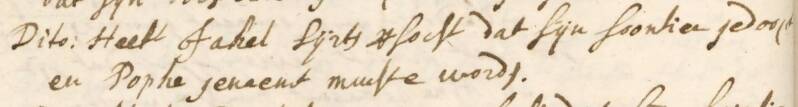 Dito: Heeft Jakel Sijrts versocht dat sijn soontien gedoopt
en Pophe genaemt mucste words.